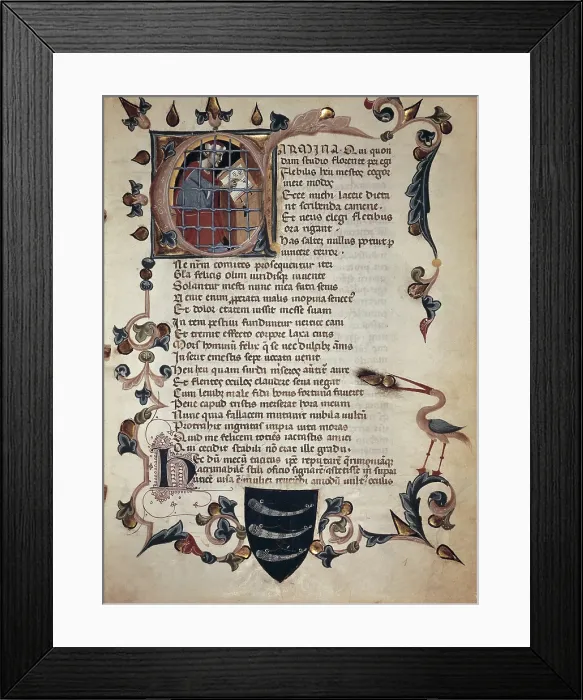 CARMINA. Qui quon
dam studio florente pegi
Flebilis heu mestos cogor
inire modos
Ecce michi lacere dicta
nt scribenda camene.
Et ueris elegi fletibus
ora rigant.
has saltez nullus potuit p
uincere terror.
Ne nrm comites prosequentur iter
Gla felicis olim uiridisq iuuente
Solantur mesti nunc mea fata senis
Venit enim pperata malis inopina senect9
Et dolor etatem iussit inesse suam
In tempestiui funduntur uertice cani
Et tremit effecto corpore laxa cutis
Mors hominum felix q se nec dulcibz annis
Inserit et mestis sepe uocata uenit
Heu heu quam surda miseros auertit aure
Et flentes oculos claudere seua negat
Cum leuibz male fida bonis fortuna faueret
Pene capud tristis merserat hora meum
Nunc quia fallacem mutauit nubila uultu
Protrahit ingratas impia uita moras
Quid me felicem toties iactastis amici
Qui cecidit stabili no erat ille gradu.
Hec du mecu tacitus ipse reputare qrimoniaq
lacrimabile stili officio signare astitisse m supra
uertice uisa e mulier reuerendi amodu uult9 oculis